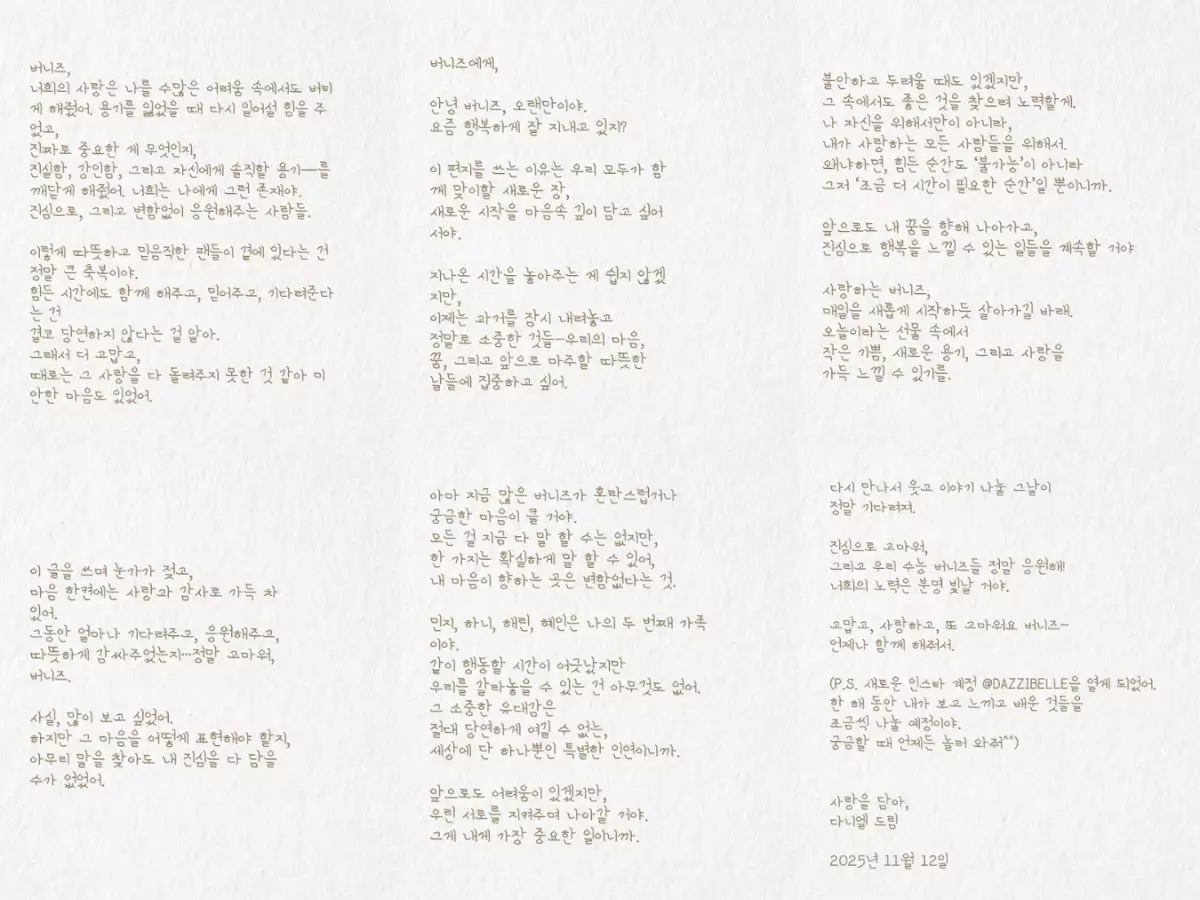 버니즈,
너희의 사랑은 나를 수많은 어려움 속에서도 버티
게 해줬어. 용기를 잃었을 때 다시 일어설 힘을 주
었고,
진짜로 중요한 게 무엇인지,
진실함, 강인함, 그리고 자신에게 솔직할 용기—를
깨닫게 해줬어. 너희는 나에게 그런 존재야.
진심으로, 그리고 변함없이 응원해주는 사람들.
이렇게 따뜻하고 믿음직한 팬들이 곁에 있다는 건
정말 큰 축복이야.
힘든 시간에도 함께 해주고, 믿어주고, 기다려준다
는 건
결코 당연하지 않다는 걸 알아.
그래서 더 고맙고,
때로는 그 사랑을 다 돌려주지 못한 것 같아 미
안한 마음도 있었어.
이 글을 쓰며 눈가가 젖고,
마음 한켠에는 사랑과 감사로 가득 차
있어.
그동안 얼마나 기다려주고, 응원해주고,
따뜻하게 감싸주었는지…정말 고마워,
버니즈.
사실, 많이 보고 싶었어.
하지만 그 마음을 어떻게 표현해야 할지,
아무리 말을 찾아도 내 진심을 다 담을
수가 없었어.
버니즈에게,
안녕 버니즈, 오랜만이야.
요즘 행복하게 잘 지내고 있지?
이 편지를 쓰는 이유는 우리 모두가 함
께 맞이할 새로운 장,
새로운 시작을 마음속 깊이 담고 싶어
서야.
지나온 시간을 놓아주는 게 쉽지 않겠
지만,
이제는 과거를 잠시 내려놓고
정말로 소중한 것들—우리의 마음,
꿈, 그리고 앞으로 마주할 따뜻한
날들에 집중하고 싶어.
아마 지금 많은 버니즈가 혼란스럽거나
궁금한 마음이 클 거야.
모든 걸 지금 다 말 할 수는 없지만,
한 가지는 확실하게 말 할 수 있어,
내 마음이 향하는 곳은 변함없다는 것.
민지, 하니, 해린, 혜인은 나의 두 번째 가족
이야.
같이 행동할 시간이 어긋났지만
우리를 갈라놓을 수 있는 건 아무것도 없어.
그 소중한 유대감은
절대 당연하게 여길 수 없는,
세상에 단 하나뿐인 특별한 인연이니까.
앞으로도 어려움이 있겠지만,
우린 서로를 지켜주며 나아갈 거야.
그게 내게 가장 중요한 일이니까.
불안하고 두려울 때도 있겠지만,
그 속에서도 좋은 것을 찾으려 노력할게.
나 자신을 위해서만이 아니라,
내가 사랑하는 모든 사람들을 위해서.
왜냐하면, 힘든 순간도 ‘불가능’이 아니라
그저 ‘조금 더 시간이 필요한 순간’일 뿐이니까.
앞으로도 내 꿈을 향해 나아가고,
진심으로 행복을 느낄 수 있는 일들을 계속할 거야
사랑하는 버니즈,
매일을 새롭게 시작하듯 살아가길 바래.
오늘이라는 선물 속에서
작은 기쁨, 새로운 용기, 그리고 사랑을
가득 느낄 수 있기를.
다시 만나서 웃고 이야기 나눌 그날이
정말 기다려져.
진심으로 고마워,
그리고 우리 수능 버니즈들 정말 응원해!
너희의 노력은 분명 빛날 거야.
고맙고, 사랑하고, 또 고마워요 버니즈—
언제나 함께 해줘서.
(P.S. 새로운 인스타 계정 @DAZZIBELLE을 열게 되었어.
한 해 동안 내가 보고 느끼고 배운 것들을
조금씩 나눌 예정이야.
궁금할 때 언제든 놀러 와줘^^)
사랑을 담아,
다니엘 드림
2025년 11월 12일